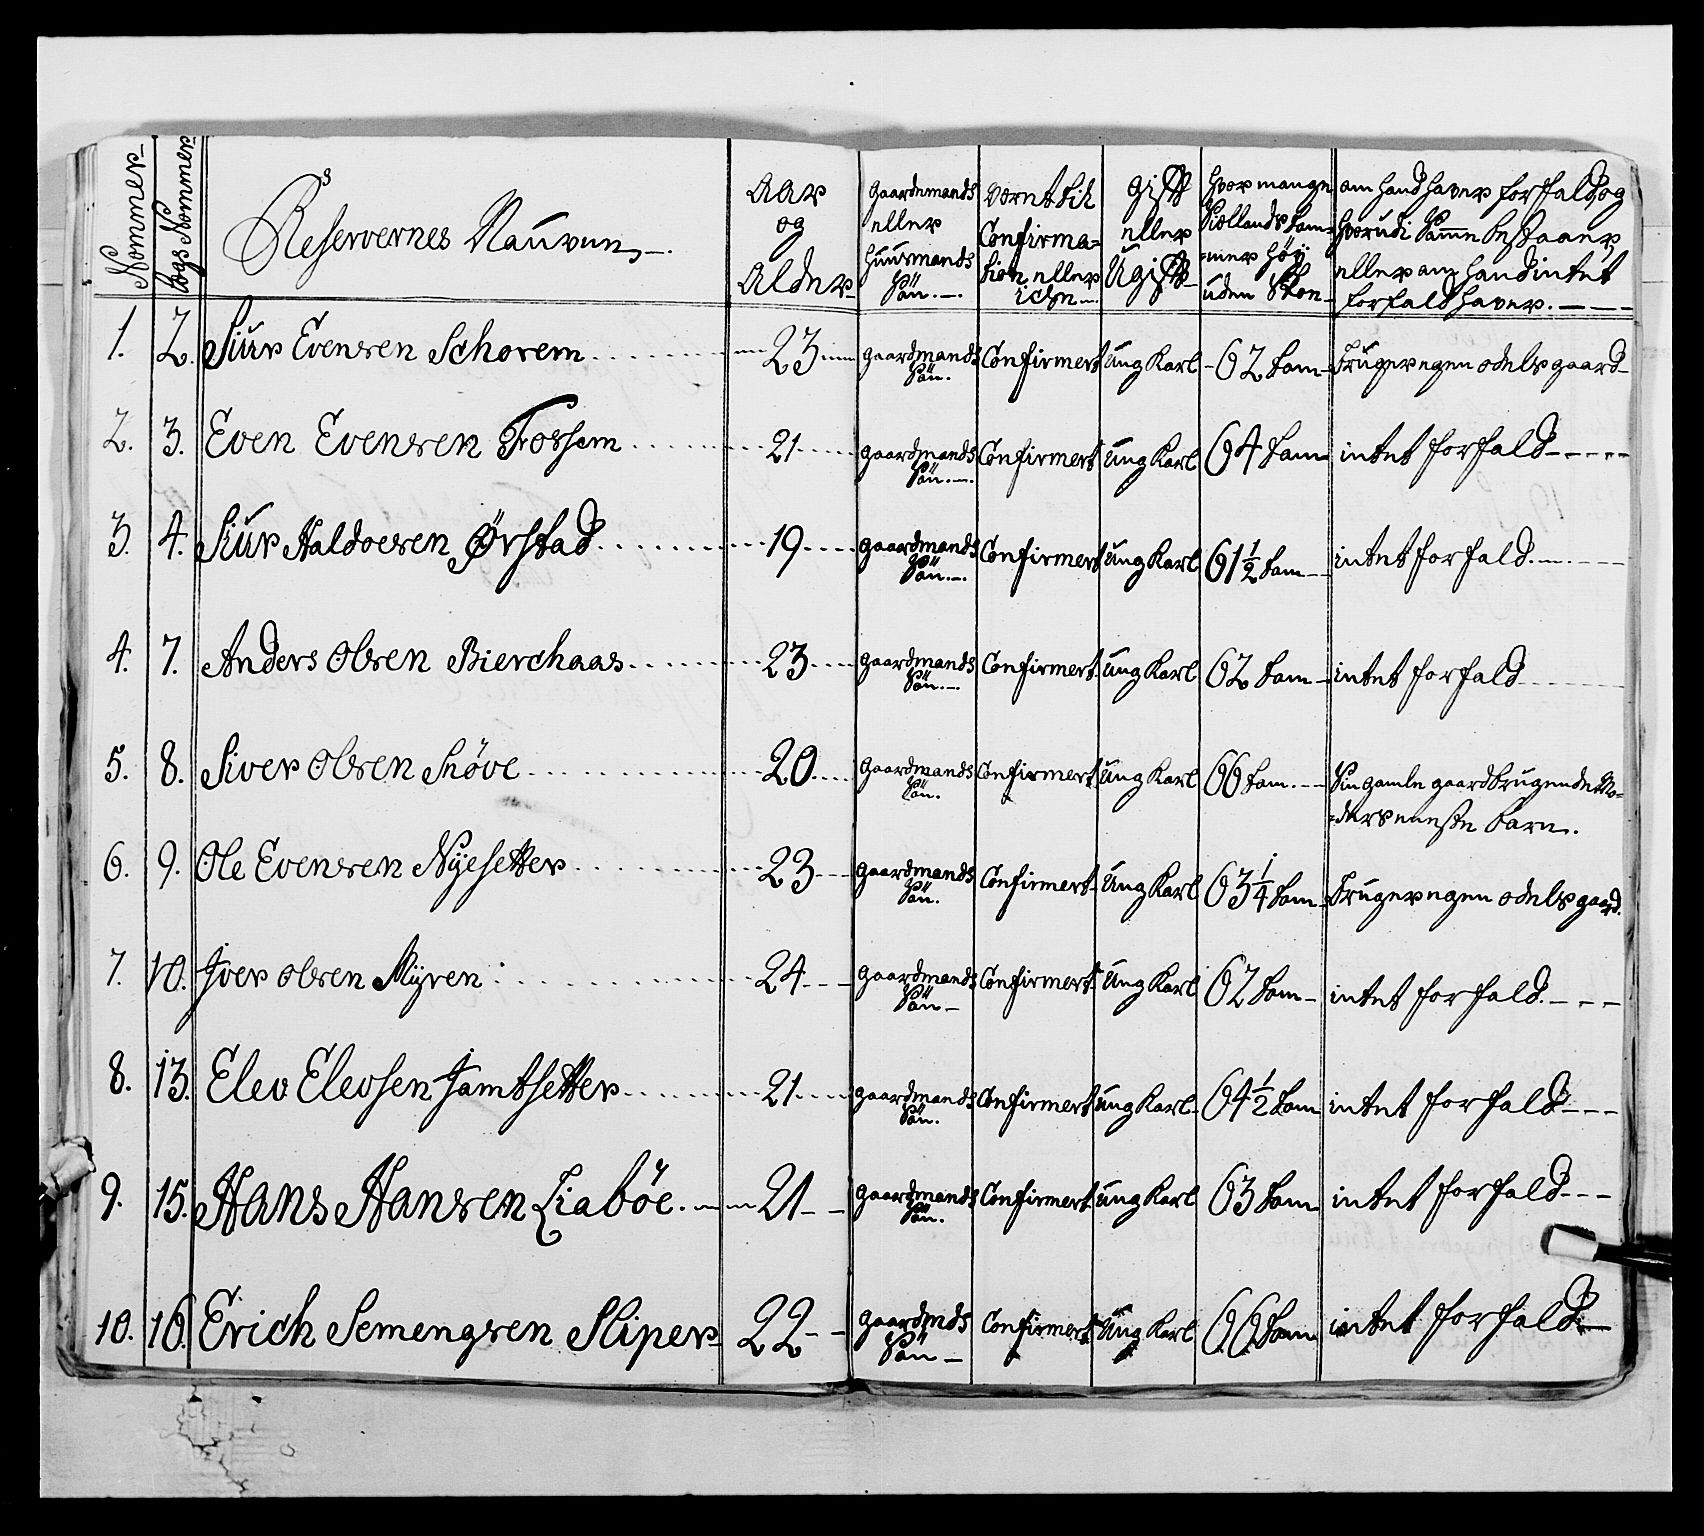 Nommer
Lægs Nommer
Reservernes Naufne
Aar
og
Alder
gaardemands
eller
huusmands
Sön
været til
Confirma=
tion eller
icke
gift
eller
Ugift
hvor mange
Siællands tom=
mer höy
uden Skoe
om hand haver forfald og
hvorudi Samme bestaaer,
eller om hand intet
forfald haver.
1. 2. Siur Evensen Schorem 23 gaardmands Sön. Confirmert Ung Karl 62 tom bruger egen odels gaard
2. 3. Even Evensen Fossem 21 gaardmands Sön. Confirmert Ung Karl 64 tom intet forfald
3. 4. Siur Haldoersen Örstad 19 gaardmands Sön. Confirmert Ung Karl 61½ tom intet forfald
4. 7. Anders Olsen Bierchaas 23 gaardmands Sön. Confirmert Ung Karl 62 tom intet forfald
5. 8. Siver Olsen Snöve 20 gaardmands Sön. Confirmert Ung Karl 66 tom. Sin gamle gaardbrugende Mo=
=ders eneste barn.
6. 9. Ole Evensen Nyesetter 23 gaardmands Sön. Confirmert Ung Karl 63¼ tom bruger egen odels gaard.
7. 10. Iver Olsen Myren 24 gaardmands Sön Confirmert Ung Karl 62 tom intet forfald.
8. 13. Elev Elevsen Jamtsetter 21 gaardmands Sön. Confirmert ung Karl 64½ tom intet forfald
9. 15. Hans Hansen Liaböe 21 gaardmands Sön. Confirmert ung Karl 63 tom intet forfald
10. 16. Erich Semengsen Sliper 22 gaardmds Sön Confirmert Ung Karl 66 tom intet forfald